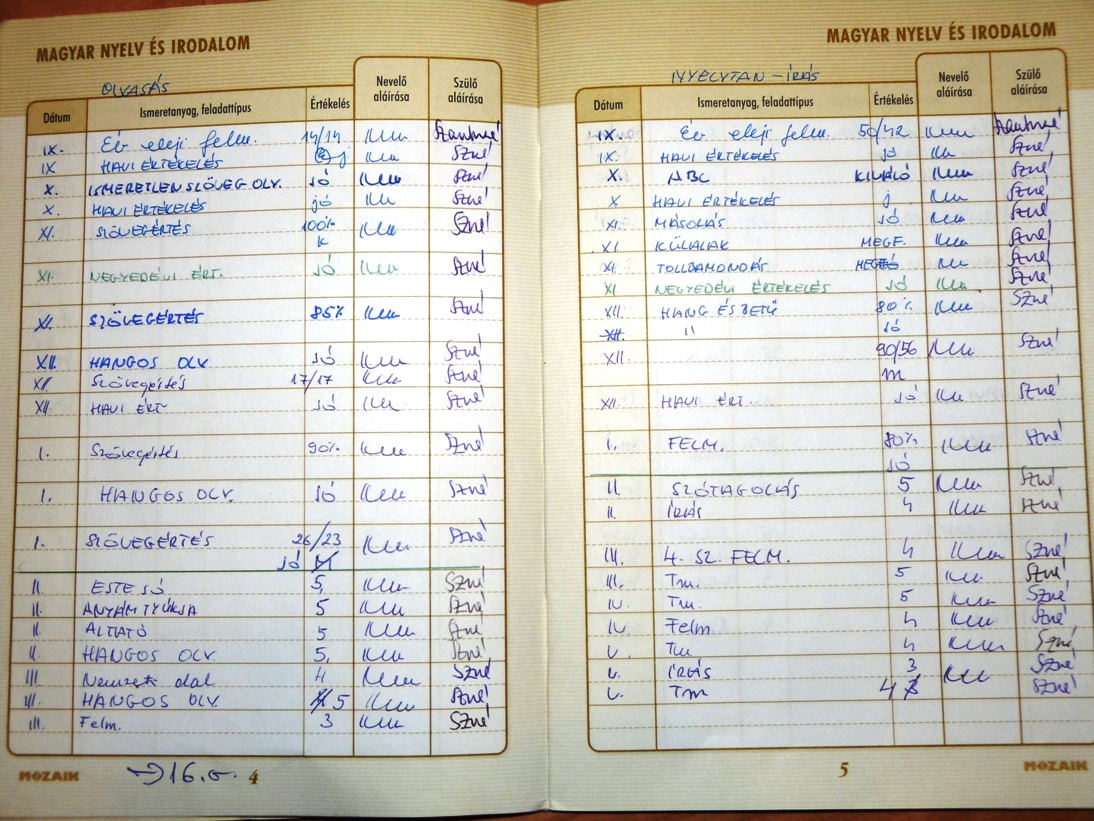 MAGYAR NYELV ÉS IRODALOM
OLVASÁS
Dátum Ismeretanyag, feladattípus Értékelés Nevelő aláírása Szülő aláírása
IX. Év eleji felm. 14/14
IX HAVI ÉRTÉKELÉS j Szné
X. ISMERETLEN SZÖVEG OLV. JÓ Szné
X. HAVI ÉRTÉKELÉS jó Szné
XI. SZÖVEGÉRTÉS 100% Szné
K
XI. NEGYEDÉVI ÉRT. JÓ Szné
XI. SZÖVEGÉRTÉS 85% Szné
XII. HANGOS OLV JÓ Szné
XII Szövegértés 17/17 Szné
XII HAVI ÉRT JÓ Szné
I. Szövegértés 90% Szné
I. HANGOS OLV. JÓ Szné
I. SZÖVEGÉRTÉS 26/23 Szné
JÓ
II. ESTE JÓ 5, Szné
II. ANYÁM TYÚKJA 5 Szné
II. ALTATÓ 5 Szné
II. HANGOS OLV. 5, Szné
III. Nemzeti dal 4 Szné
III. HANGOS OLV 5 Szné
III. Felm. 3 Szné
MOZAIK → 16. o. 4
MAGYAR NYELV ÉS IRODALOM
NYELVTAN - ÍRÁS
Dátum Ismeretanyag, feladattípus Értékelés Nevelő aláírása Szülő aláírása
IX. Év eleji felm. 50/42
IX. HAVI ÉRTÉKELÉS JÓ Szné
X. ABC KIVÁLÓ Szné
X HAVI ÉRTÉKELÉS j Szné
XI. MÁSOLÁS JÓ Szné
XI. KÜLALAK MEGF. Szné
XI. TOLLBAMONDÁS Szné
XI. NEGYEDÉVI ÉRTÉKELÉS JÓ Szné
XII. HANG ÉS BETŰ 80% Szné
XII. " JÓ
XII. 90/56 Szné
m
XII. HAVI ÉRT. JÓ Szné
I. FELM. 80% Szné
JÓ
II. SZÓTAGOLÁS 5 Szné
II. ÍRÁS 4 Szné
III. 4. SZ. FELM. 4 Szné
III. Tm. 5 Szné
IV. Tm. 5 Szné
IV. Felm 4 Szné
V. Tm 4 Szné
V. ÍRÁS 3 Szné
V. Tm 4 Szné
5 MOZAIK